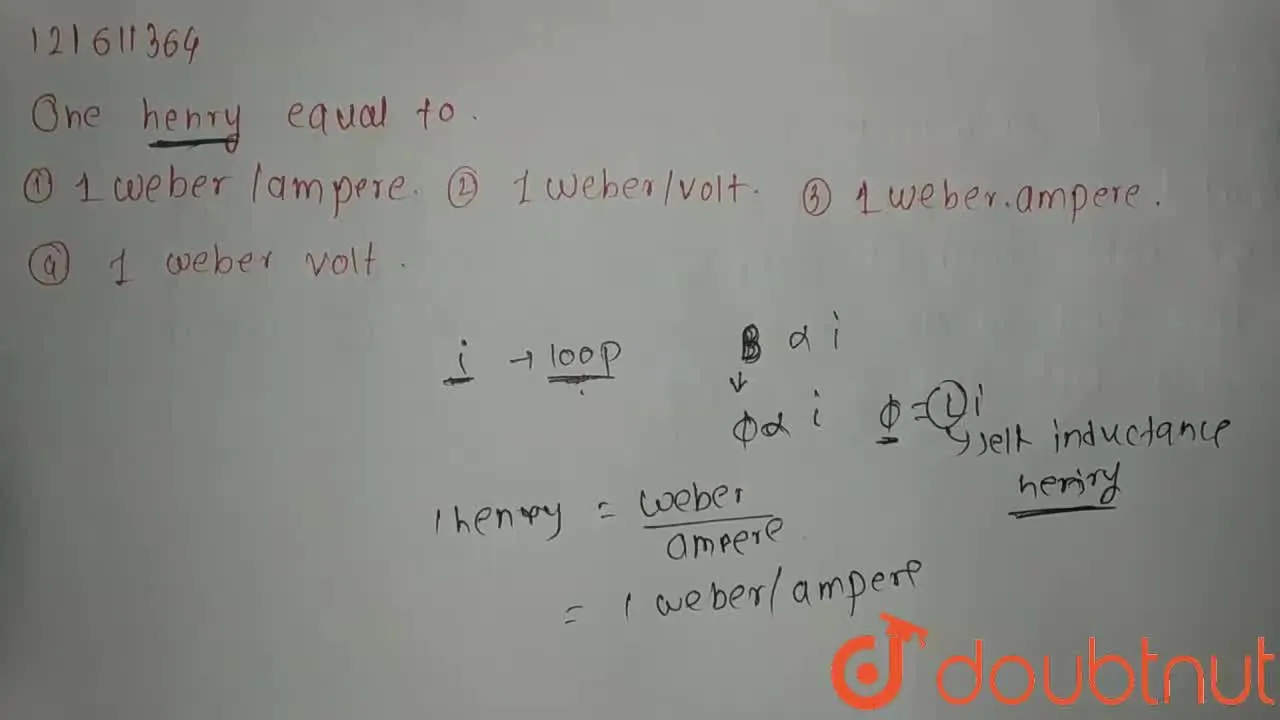 121611364
One henry equal to.
① 1 weber/ampere. ② 1 weber/volt. ③ 1 weber.ampere.
④ 1 weber volt.
i → loop B α i
↓
ϕ α i ϕ = Li
↳ self inductance
henry
1 henry = weber
ampere
= 1 weber/ampere
doubtnut